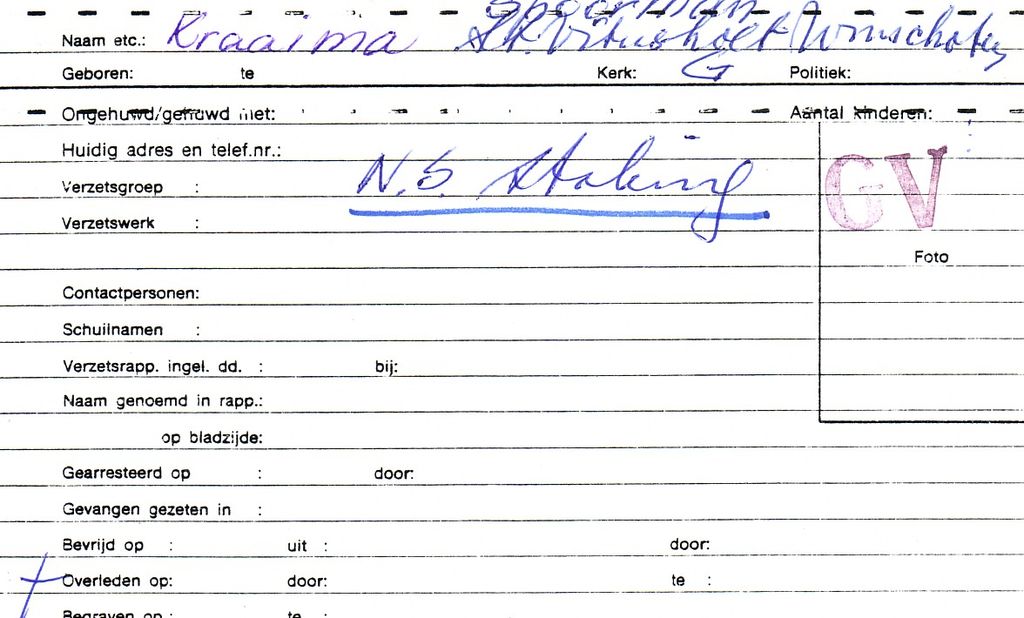 Spoorman
Naam etc.: Kraaima St. Vitusholt Winschoten
Geboren: te Kerk: G Politiek:
Ongehuwd/gehuwd met: Aantal kinderen:
Huidig adres en telef.nr.:
Verzetsgroep : N.S Staking GV
Verzetswerk :
Foto
Contactpersonen:
Schuilnamen :
Verzetsrapp. ingel. dd. : bij:
Naam genoemd in rapp.:
op bladzijde:
Gearresteerd op : door:
Gevangen gezeten in :
Bevrijd op : uit : door:
Overleden op: door: te :
Begraven op : te :